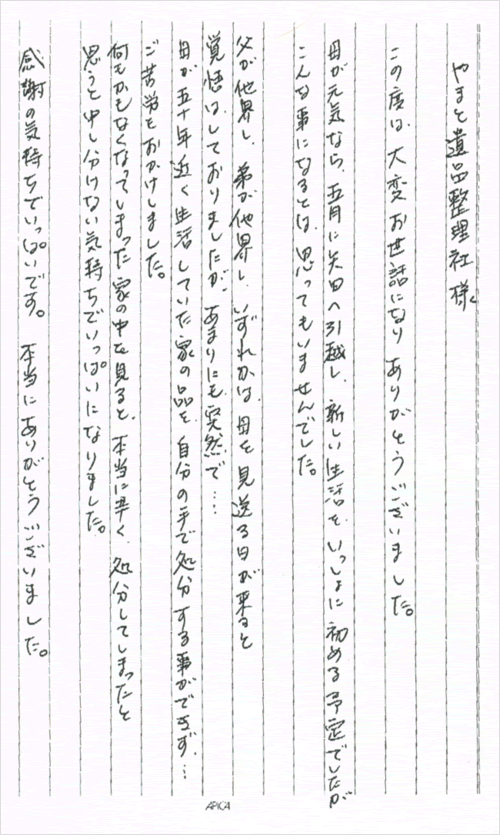 やまと遺品整理社様
この度は、大変お世話になり ありがとうございました。
母が元気なら、五月に矢田へ引越し、新しい生活を、いっしょに初める予定でしたが
こんな事になるとは、思ってもいませんでした。
父が他界し、弟が他界し、いずれかは、母を見送る日が来ると
覚悟はしておりましたが、あまりにも突然で…
母が五十年近く生活していた家の品を、自分の手で処分する事ができず、…
ご苦労をおかけしました。
何もかもなくなってしまった家の中を見ると、本当に早く、処分してしまったと
思うと申し分けない気持ちでいっぱいになりました。
感謝の気持ちでいっぱいです。 本当にありがとうございました。
APICA